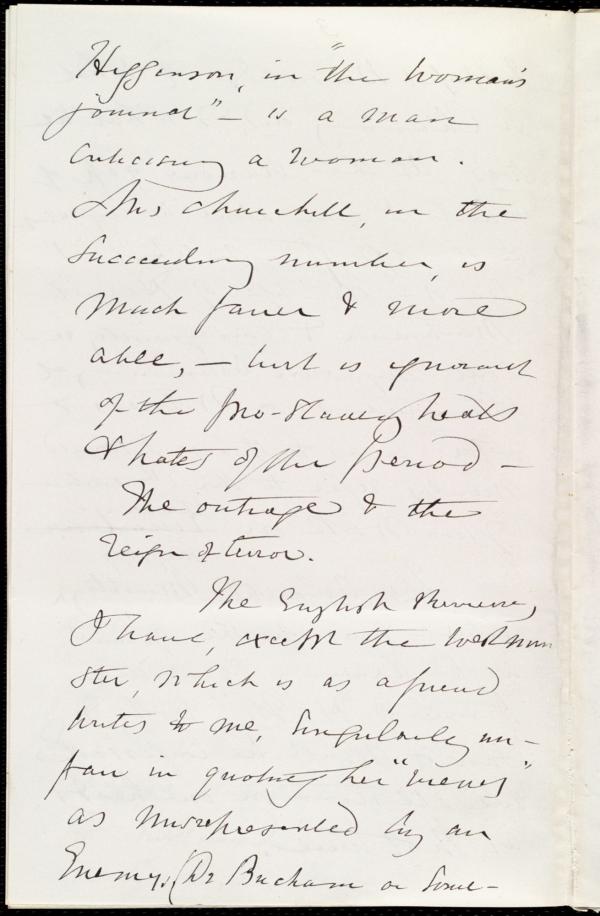 Higginson, in "the Woman's
journal" – is a man
criticising a woman.
Mrs Churchill, in the
succeeding number, is
much fairer & more
able, – but is ignorant
of the Pro-Slavery heats
& hates of the period –
The outrage & the
reign of terror.
The English Reviews,
I have, except the Westmin
ster, which is as a friend
writes to me, singularly un-
fair in quoting her "views"
as misrepresented by an
Enemy, (Dr Bucham or some-